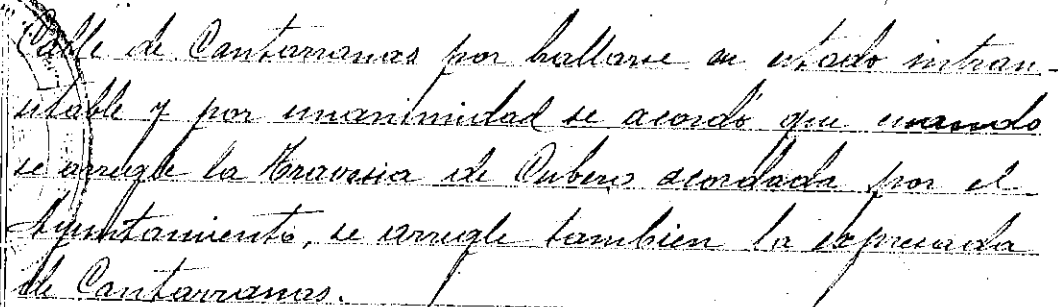 Calle de Cantarranas por hallarse en estado intran-
sitable y por unanimidad se acordó que cuando
se arregle la Travesia de Cubero acordada por el
Ayuntamiento, se arregle tambien la expresada
de Cantarranas.